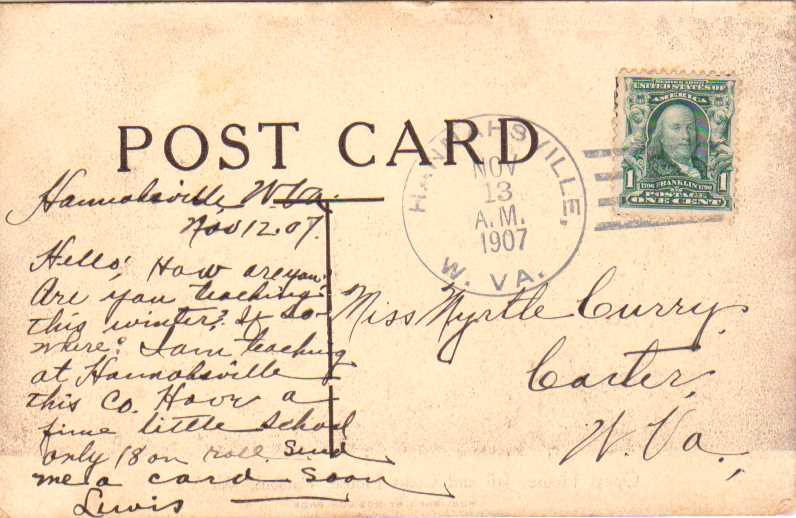 POST CARD
HANNAHSVILLE,
NOV
13
A.M.
1907
W. VA.
UNITED STATES OF
AMERICA
1 FRANKLIN 1
POSTAGE
ONE CENT
Hannahsville W Va.
Nov 12. 07.
Hello! How are you.
Are you teaching
this winter? If so
where? I am teaching
at Hannahsville
this Co. Have a
fine little school
only 18 on roll. Send
me a card soon
Lewis
Miss Myrtle Curry
Carter,
W. Va.,